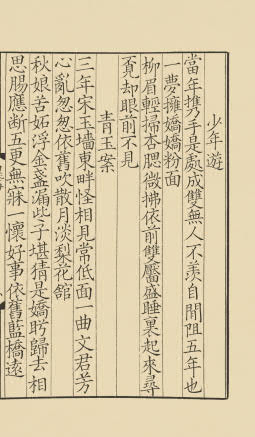 少年遊
當年攜手是處成雙無人不羨自間阻五年也
一夢擁嬌嬌粉面
柳眉輕掃杏腮微拂依前雙靨盛睡裏起來尋
覔却眼前不見
青玉案
三年宋玉墻東畔怪相見常低面一曲文君芳
心亂怱怱依舊吹散月淡梨花館
秋娘苦妬浮金盞漏些子堪猜是嬌盻歸去相
思腸應断五更無寐一懷好事依舊藍橋遠